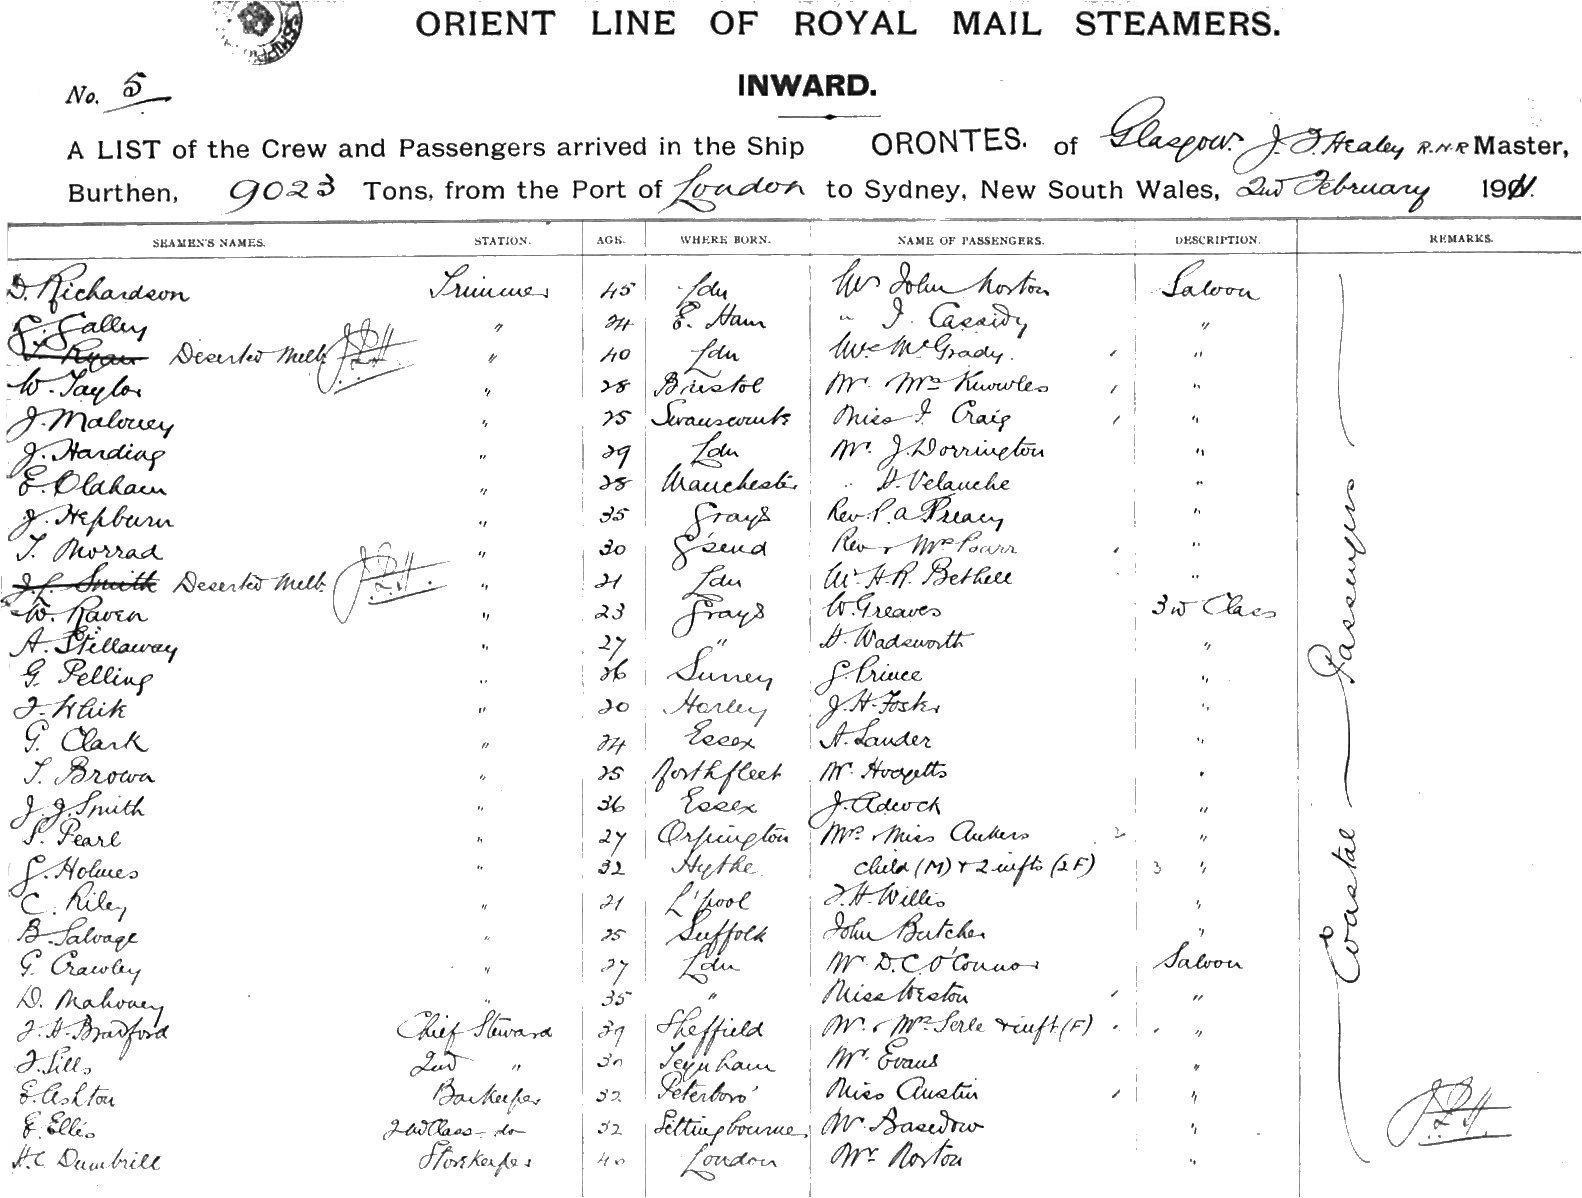 ORIENT LINE OF ROYAL MAIL STEAMERS.
No. 5
INWARD.
A LIST of the Crew and Passengers arrived in the Ship ORONTES. of Glasgow. J. F. Healey R.N.R Master,
Burthen, 9023 Tons, from the Port of London to Sydney, New South Wales, 2nd February 1911.
SEAMEN'S NAMES. STATION. AGE. WHERE BORN. NAME OF PASSENGERS. DESCRIPTION. REMARKS.
D. Richardson Trimmer 45 Ldn Mr John Norton Saloon
G. Galley " 24 E. Ham " J. Cassidy "
T. Ryan Deserted Melb. " 40 Ldn McGrady. "
W. Taylor " 28 Bristol Mr. Mrs Knowles "
J. Maloney " 25 Swanscombe Miss J. Craig "
J. Harding " 29 Ldn Mr. J. Dorrington "
E. Oldham " 28 Manchester " H. Velauche "
J. Hepburn " 35 Grays Rev. P. A. Treacy "
T. Morrad " 30 G'send Rev & Mrs Barr "
J. C. Smith Deserted Melb. " 21 Ldn Mr. H. R. Bethell "
W. Raven " 23 Grays W. Greaves 3rd Class
A. Stillaway " 27 " H. Wadsworth "
G. Pelling " 26 Surrey G. Prince "
J. White " 20 Harley J. H. Foster "
G. Clark " 24 Essex A. Lander "
T. Brown " 25 Northfleet W. Hodgetts "
J. J. Smith " 36 Essex J. Adcock "
S. Pearl " 27 Orpington Mrs. & Miss Ankers 2 "
G. Holmes " 32 Hythe child (M) & 2 infts (2F) 3 "
C. Riley " 21 L'pool F. H. Willis "
B. Salvage " 25 Suffolk John Butcher "
G. Crawley " 27 Ldn Mr. D. C. O'Connor Saloon
D. Mahoney " 35 " Miss Weston "
J. H. Bradford Chief Steward 39 Sheffield Mr. & Mrs. Serle & inft (F) "
J. Sills 2nd " 30 Teynham Mr. Evans "
E. Ashton Barkeeper 32 Peterboro' Miss Austin "
E. Ellis 2nd Class do 32 Sittingbourne Mr. Basedow "
H. C. Dumbrill Storekeeper 40 London Mr. Norton "
Coastal Passengers